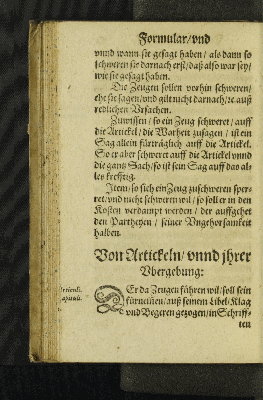 Formular/vnd
vnnd wann sie gesagt haben / als dann so
schweren sie darnach erst/daß also war sey/
wie sie gesagt haben.
Die Zeugen sollen vorhin schweren/
ehe sie sagen/vnd gilt nicht darnach/ꝛc auß
redlichen Vrsachen.
Zuwissen / so ein Zeug schweret / auff
die Artickel / die Warheit zusagen / ist ein
Sag allein fürträglich auff die Artickel.
So er aber schweret auff die Artickel vnnd
die gantz Sach/so ist sein Sag auff das al-
les krefftig.
Item/so sich ein Zeug zuschweren sper-
ret/vnd nicht schweren wil / so soll er in den
Kosten verdampt werden / der auffgehet
den Partheyen / seiner Vngehorsamkeit
halben.
Von Artickeln/ vnnd jhrer
Vbergebung:
DEr da Zeugen führen wil/soll sein
fürnemen/auß seinem Libel/Klag
vnd Begeren gezogen/in Schriff-
ten